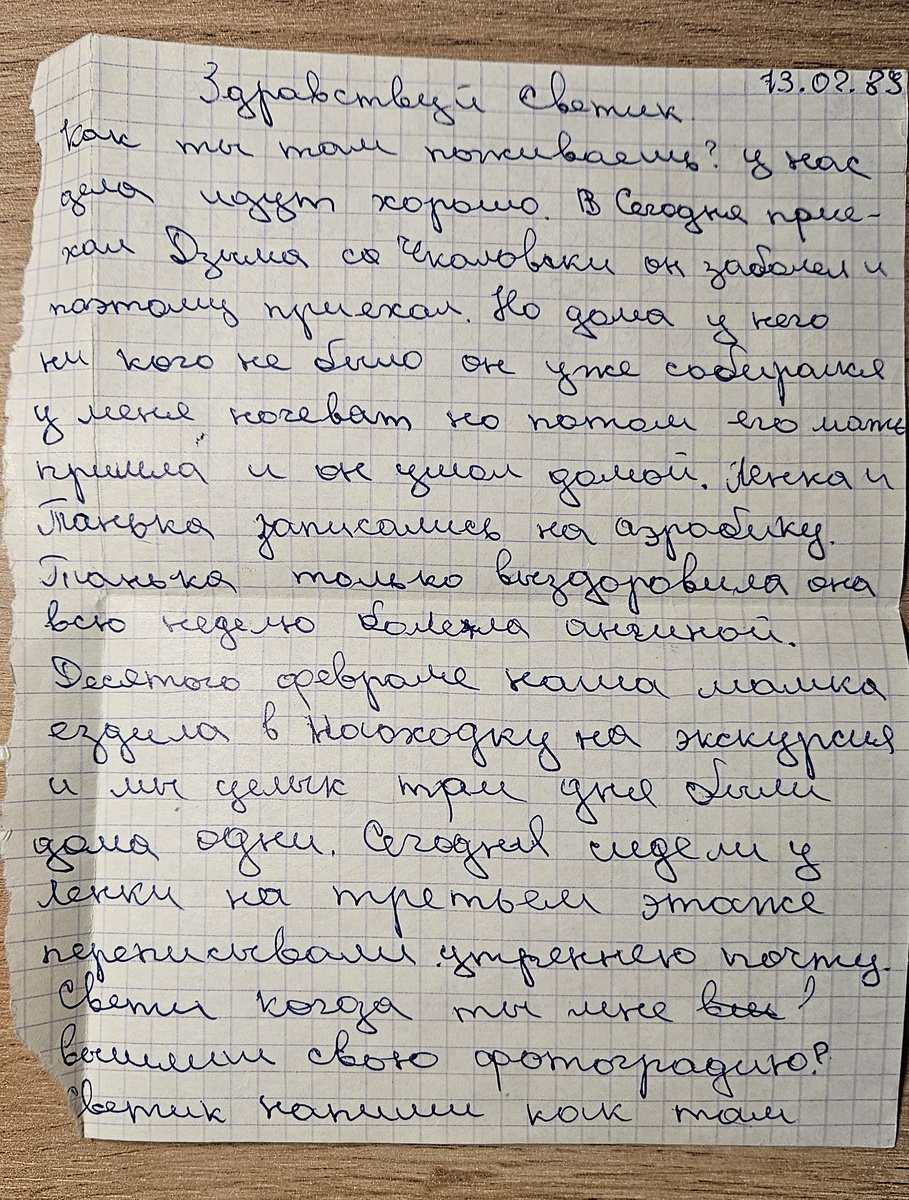 13.02.89
Здравствуй Светик.
Как ты там поживаешь? у нас
дела идут хорошо. В Сегодня прие-
хал Дзыма со Чкаловски он заболел и
поэтому приехал. Но дома у него
ни кого не было он уже собирался
у меня ночеват но потом его мать
пришла и он ушол домой. Ленка и
Танька записались на аэробику.
Танька только выздоровила она
всю неделю болела ангиной.
Десятого февраля наша мамка
ездила в Находку на экскурсия
и мы целых три дня были
дома одни. Сегодня сидели у
Ленки на третьем этаже
переписывали утреннею почту.
Светик когда ты мне
вышлиш свою фотоградию?
Светик напиши как там